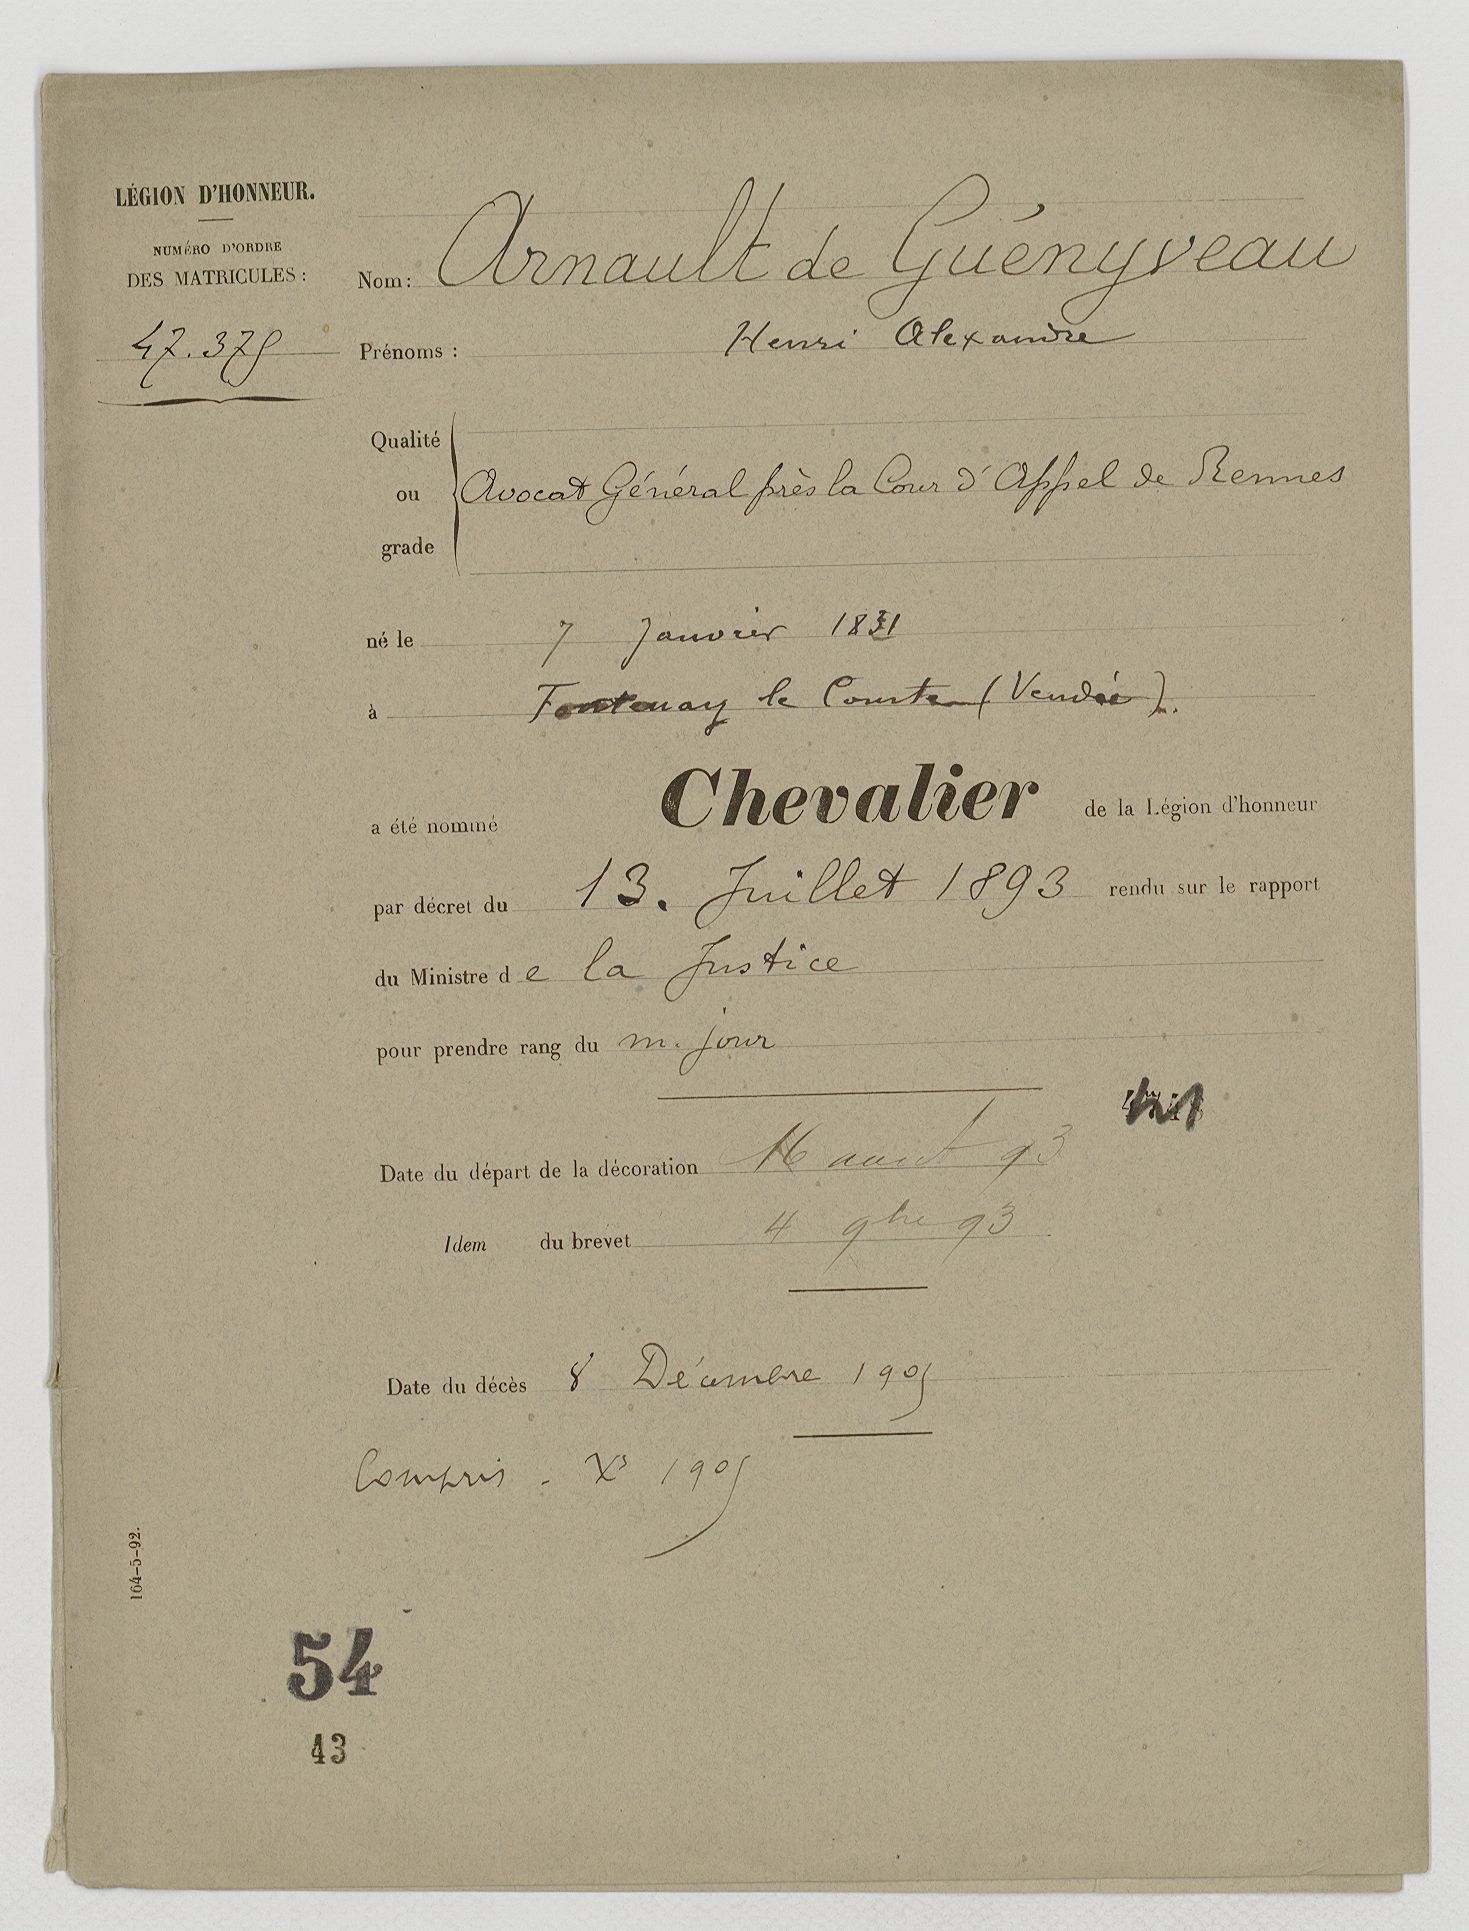 LÉGION D'HONNEUR.
NUMÉRO D'ORDRE
DES MATRICULES :
47.375
Nom : Arnault de Guényveau
Prénoms : Henri Alexandre
Qualité
ou
grade
Avocat Général près la Cour d'Appel de Rennes
né le 7 Janvier 1831
à Fontenay le Comte (Vendée).
a été nommé Chevalier de la Légion d'honneur
par décret du 13. Juillet 1893 rendu sur le rapport
du Ministre de la Justice
pour prendre rang du m. jour
Date du départ de la décoration 16 aout 93
Idem du brevet 4 9bre 93
Date du décès 8 Décembre 1905
Compris - Xe 1905
164-5-92.
54
43